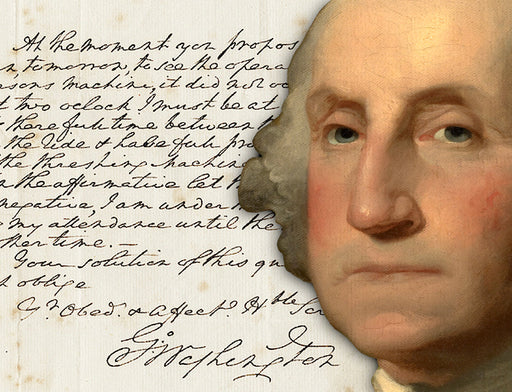 At the moment you propos
tomorrow, to see the opera
ersons machine, it did not oc
t two oclock I must be at
there full time between t
the Ride & have full pr
the threshing machine
n the affirmative let t
negative, I am under
my attendance until the
other time. —
Your solution of this qu
oblige
Yr. Obed. & affect. Hble Ser
Go: Washington